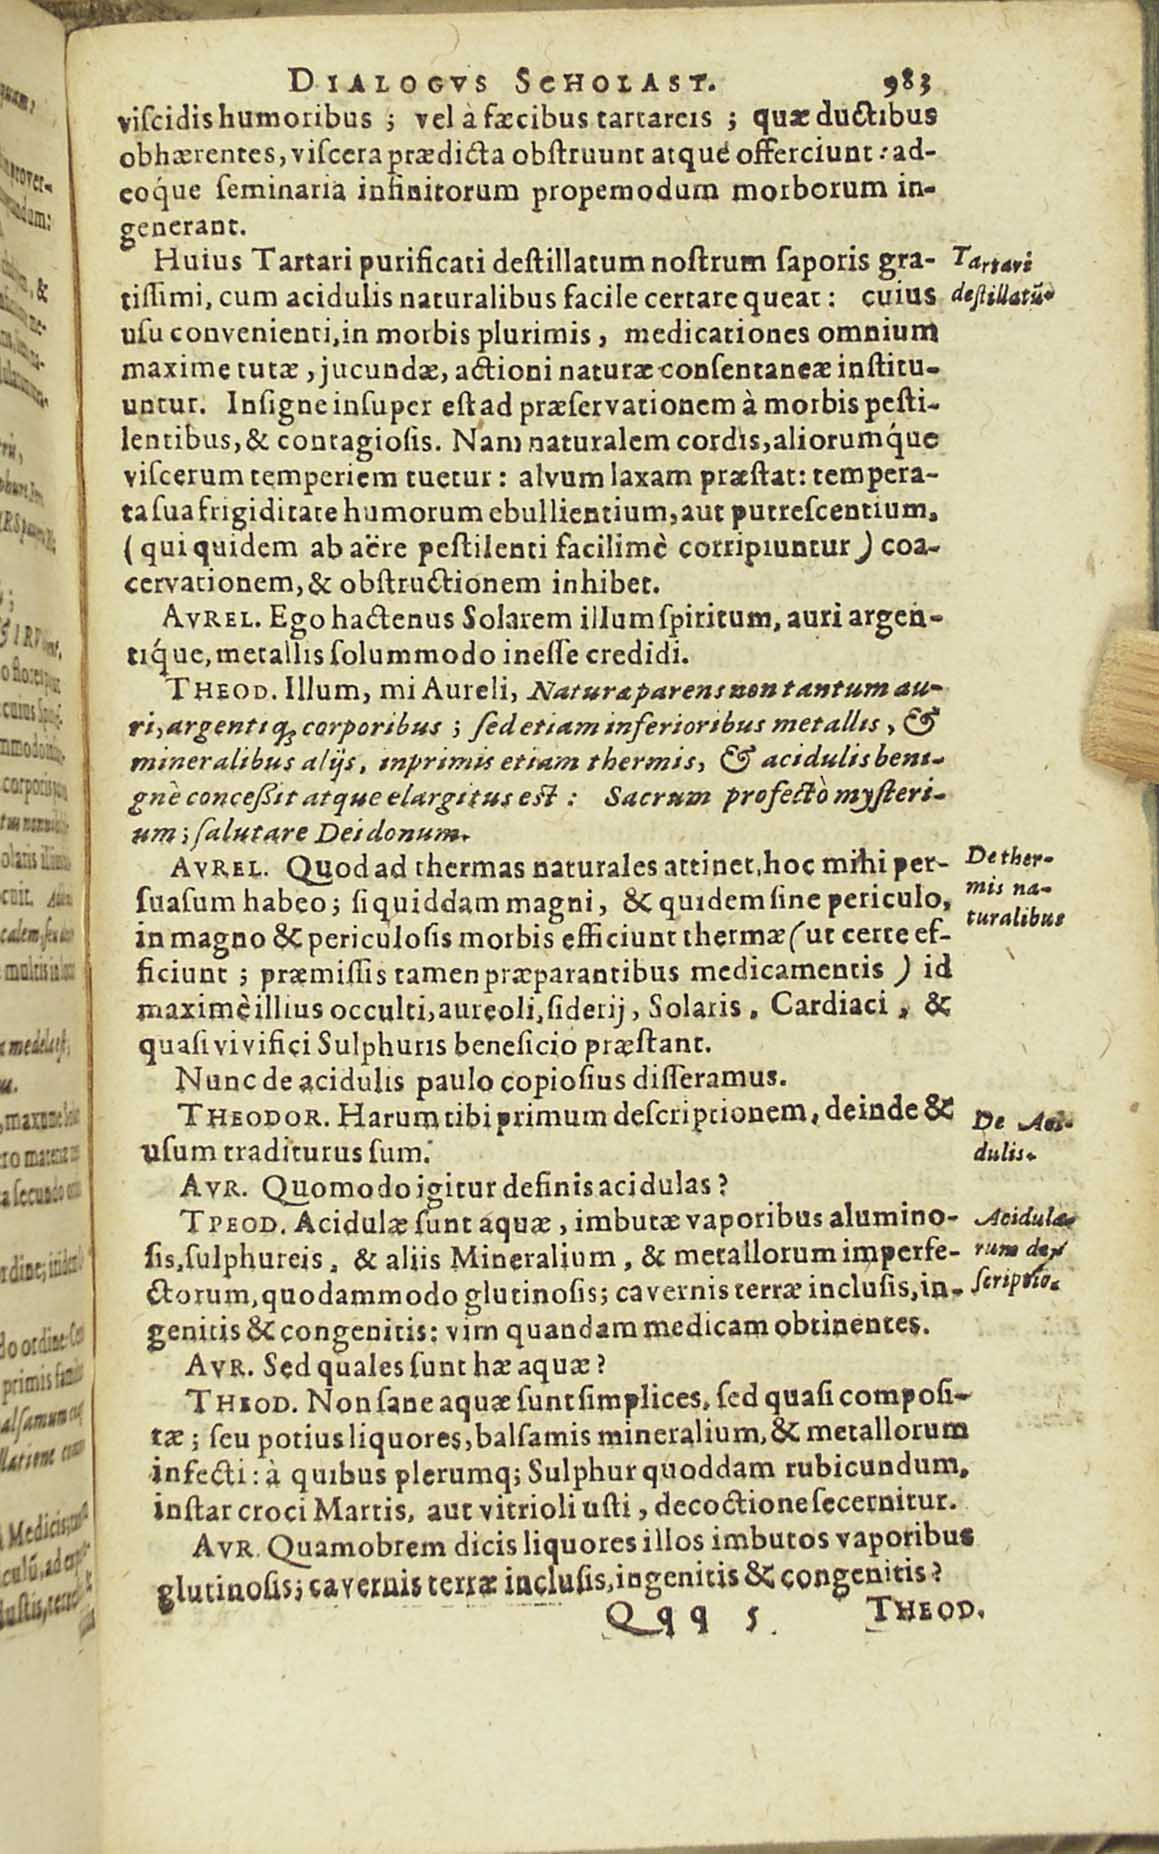 DIALOGVS SCHOLAST. 983
viſcidis humoribus ; vel à fæcibus tartareis ; quæ ductibus
obhærentes, viſcera prædicta obſtruunt atque offerciunt: ad-
eoq́ue ſeminaria infinitorum propemodum morborum in-
generant.
Huius Tartari purificati deſtillatum noſtrum ſaporis gra-
Tartari
tiſſimi, cum acidulis naturalibus facile certare queat: cuius
deſtillatũ.
uſu convenienti, in morbis plurimis, medicationes omnium
maxime tutæ, jucundæ, actioni naturæ conſentaneæ inſtitu-
untur. Inſigne inſuper eſt ad præſervationem à morbis peſti-
lentibus, & contagioſis. Nam naturalem cordis, aliorumq́ue
viſcerum temperiem tuetur: alvum laxam præſtat: tempera-
ta ſua frigiditate humorum ebullientium, aut putreſcentium,
(qui quidem ab aëre peſtilenti facilimè corripiuntur) coa-
cervationem, & obſtructionem inhibet.
AVREL. Ego hactenus Solarem illum ſpiritum, auri argen-
tiq́ue, metallis ſolummodo ineſſe credidi.
THEOD. Illum, mi Aureli, Naturæ parens non tantum au-
ri, argentiq; corporibus ; ſed etiam inferioribus metallis, &
mineralibus alijs, inprimis etiam thermis, & acidulis beni-
gnè conceßit atque elargitus eſt : Sacrum profectò myſteri-
um ; ſalutare Dei donum.
AVREL. Quod ad thermas naturales attinet, hoc mihi per-
De ther-
ſuaſum habeo; ſi quiddam magni, & quidem ſine periculo,
mis na-
in magno & periculoſis morbis efficiunt thermæ (ut certe ef-
turalibus
ficiunt ; præmiſſis tamen præparantibus medicamentis) id
maximè illius occulti, aureoli, ſiderij, Solaris, Cardiaci, &
quaſi vivifici Sulphuris beneficio præſtant.
Nunc de acidulis paulo copioſius diſſeramus.
THEODOR. Harum tibi primum deſcriptionem, deinde &
De Aci-
uſum traditurus ſum.
dulis.
AVR. Quomodo igitur definis acidulas?
TPEOD. Acidulæ ſunt aquæ, imbutæ vaporibus alumino-
Acidula-
ſis, ſulphureis, & aliis Mineralium, & metallorum imperfe-
rum de-
ctorum, quodammodo glutinoſis; cavernis terræ incluſis, in-
ſcriptio.
genitis & congenitis: vim quandam medicam obtinentes.
AVR. Sed quales ſunt hæ aquæ?
THEOD. Non ſane aquæ ſunt simplices, ſed quaſi compoſi-
tæ ; ſeu potius liquores, balſamis mineralium, & metallorum
infecti: à quibus plerumq; Sulphur quoddam rubicundum,
inſtar croci Martis, aut vitrioli uſti, decoctione ſecernitur.
AVR. Quamobrem dicis liquores illos imbutos vaporibus
glutinoſis; cavernis terræ incluſis, ingenitis & congenitis?
Qqq 5 THEOD.